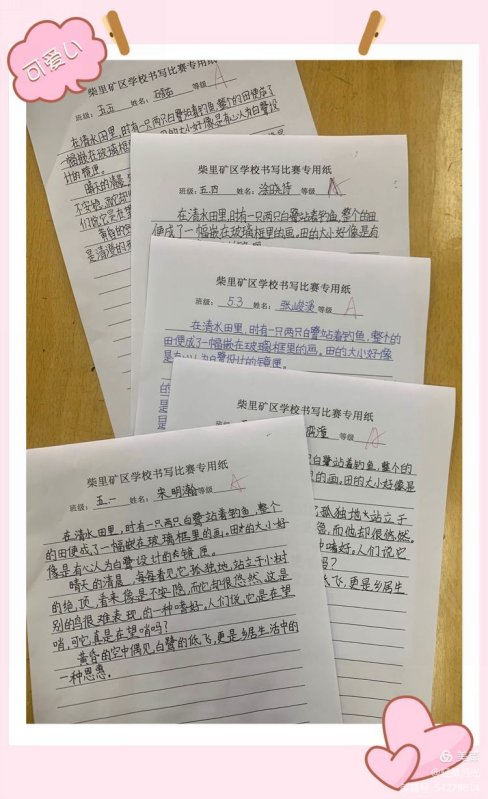 可爱い
柴里矿区学校书写比赛专用纸
班级: 五.五 姓名: 等级 A
在清水田里,时有一只两只白鹭站着钓鱼,整个的田便成了
一幅嵌在玻璃框里的画。田的大小好像是有心人为白鹭设
计的镜匣。
晴天的清晨
不安稳,而它却
们说它是在望
黄昏的空
是清澄的
柴里矿区学校书写比赛专用纸
班级: 五.四 姓名: 涂晓诗 等级 A
在清水田里,时有一只两只白鹭站着钓鱼,整个的田
便成了一幅嵌在玻璃框里的画。田的大小好像是有
柴里矿区学校书写比赛专用纸
班级: 5.3 姓名: 张峻溪 等级 A
在清水田里,时有一只两只白鹭站着钓鱼,整个的
田便成了一幅嵌在玻璃框里的画。田的大小好像
是有心人为白鹭设计的镜匣。
柴里矿区学校书写比赛专用纸
潼 等级 A
只白鹭站着钓鱼,整个的
里的画。田的大小好像是
孤独地站立于
急,而他却很悠然。
种嗜好。人们说它
吗?
低飞,更是乡居生
柴里矿区学校书写比赛专用纸
班级: 五.一 姓名: 宋明瀚 等级 A
在清水田里,时有一只两只白鹭站着钓鱼,整个
的田便成了一幅嵌在玻璃框里的画。田的大小好
像是有心人为白鹭设计的镜匣。
晴天的清晨,每每看见它孤独地,站立于小树
的绝,顶,看来像是不安隐,而它却很悠然,这是
别的鸟很难表现,的一种嗜好。人们说,它是在望
哨,可它真是在望哨吗?
黄昏的空中偶见,白鹭的低飞,更是乡居生活中的
一种恩惠。